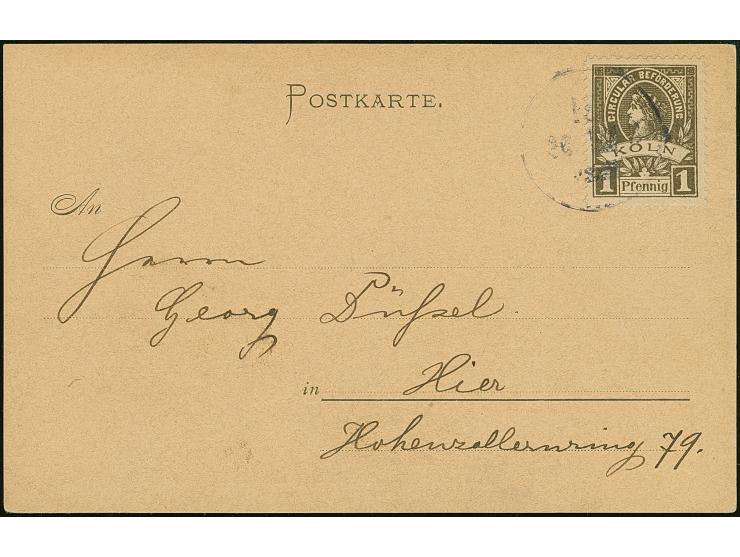 POSTKARTE.
CIRCULAR BEFÖRDERUNG
KÖLN
1 Pfennig 1
An
Herrn
Georg Düssel.
in Hier
Hohenzollernring 79.